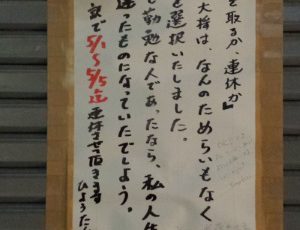 を取るか、連休か』
大将は、なんのためらいもなく
を選択いたしました。
と勤勉な人であったなら、私の人生
違ったものになっていたでしょう。
訳で5/1〜5/5迄連休させて頂きます
ひょうたん